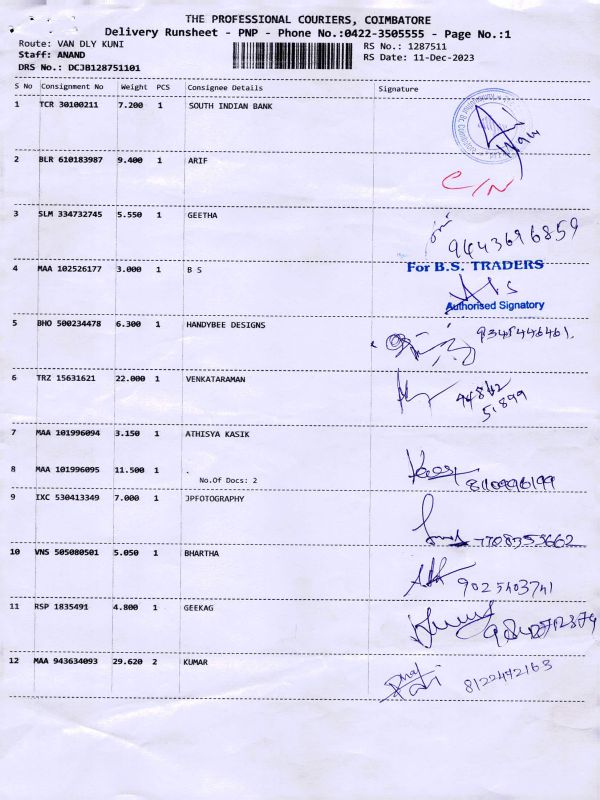 THE PROFESSIONAL COURIERS, COIMBATORE
Delivery Runsheet - PNP - Phone No.:0422-3505555 - Page No.:1
Route: VAN DLY KUNI RS No.: 1287511
Staff: ANAND RS Date: 11-Dec-2023
DRS No.: DCJB128751101
S No Consignment No Weight PCS Consignee Details Signature
1 TCR 30100211 7.200 1 SOUTH INDIAN BANK
2 BLR 610183987 9.400 1 ARIF
C/N
3 SLM 334732745 5.550 1 GEETHA
9443696859
For B.S. TRADERS
4 MAA 102526177 3.000 1 B S
Authorised Signatory
5 BHO 500234478 6.300 1 HANDYBEE DESIGNS 9345446461.
6 TRZ 15631621 22.000 1 VENKATARAMAN
94842
51899
7 MAA 101996094 3.150 1 ATHISYA KASIK
8 MAA 101996095 11.500 1 .
No.Of Docs: 2
9 IXC 530413349 7.000 1 JPFOTOGRAPHY
7708355662
10 VNS 505080501 5.050 1 BHARTHA
9025403741
11 RSP 1835491 4.800 1 GEEKAG
12 MAA 943634093 29.620 2 KUMAR
8122472163